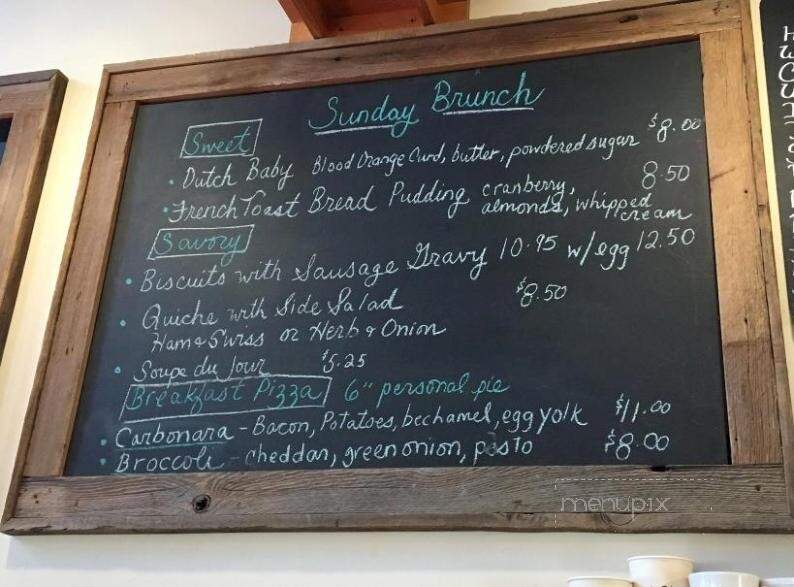 Sunday Brunch
Sweet
• Dutch Baby Blood Orange Curd, butter, powdered sugar $8.00
• French Toast Bread Pudding cranberry, almonds, whipped cream 8.50
Savory
• Biscuits with Sausage Gravy 10.95 w/egg 12.50
• Quiche with Side Salad $8.50
Ham & Swiss or Herb & Onion
• Soupe du Jour $5.25
Breakfast Pizza 6" personal pie
• Carbonara - Bacon, Potatoes, bechamel, egg yolk $11.00
• Broccoli - cheddar, green onion, pesto $8.00
menupix